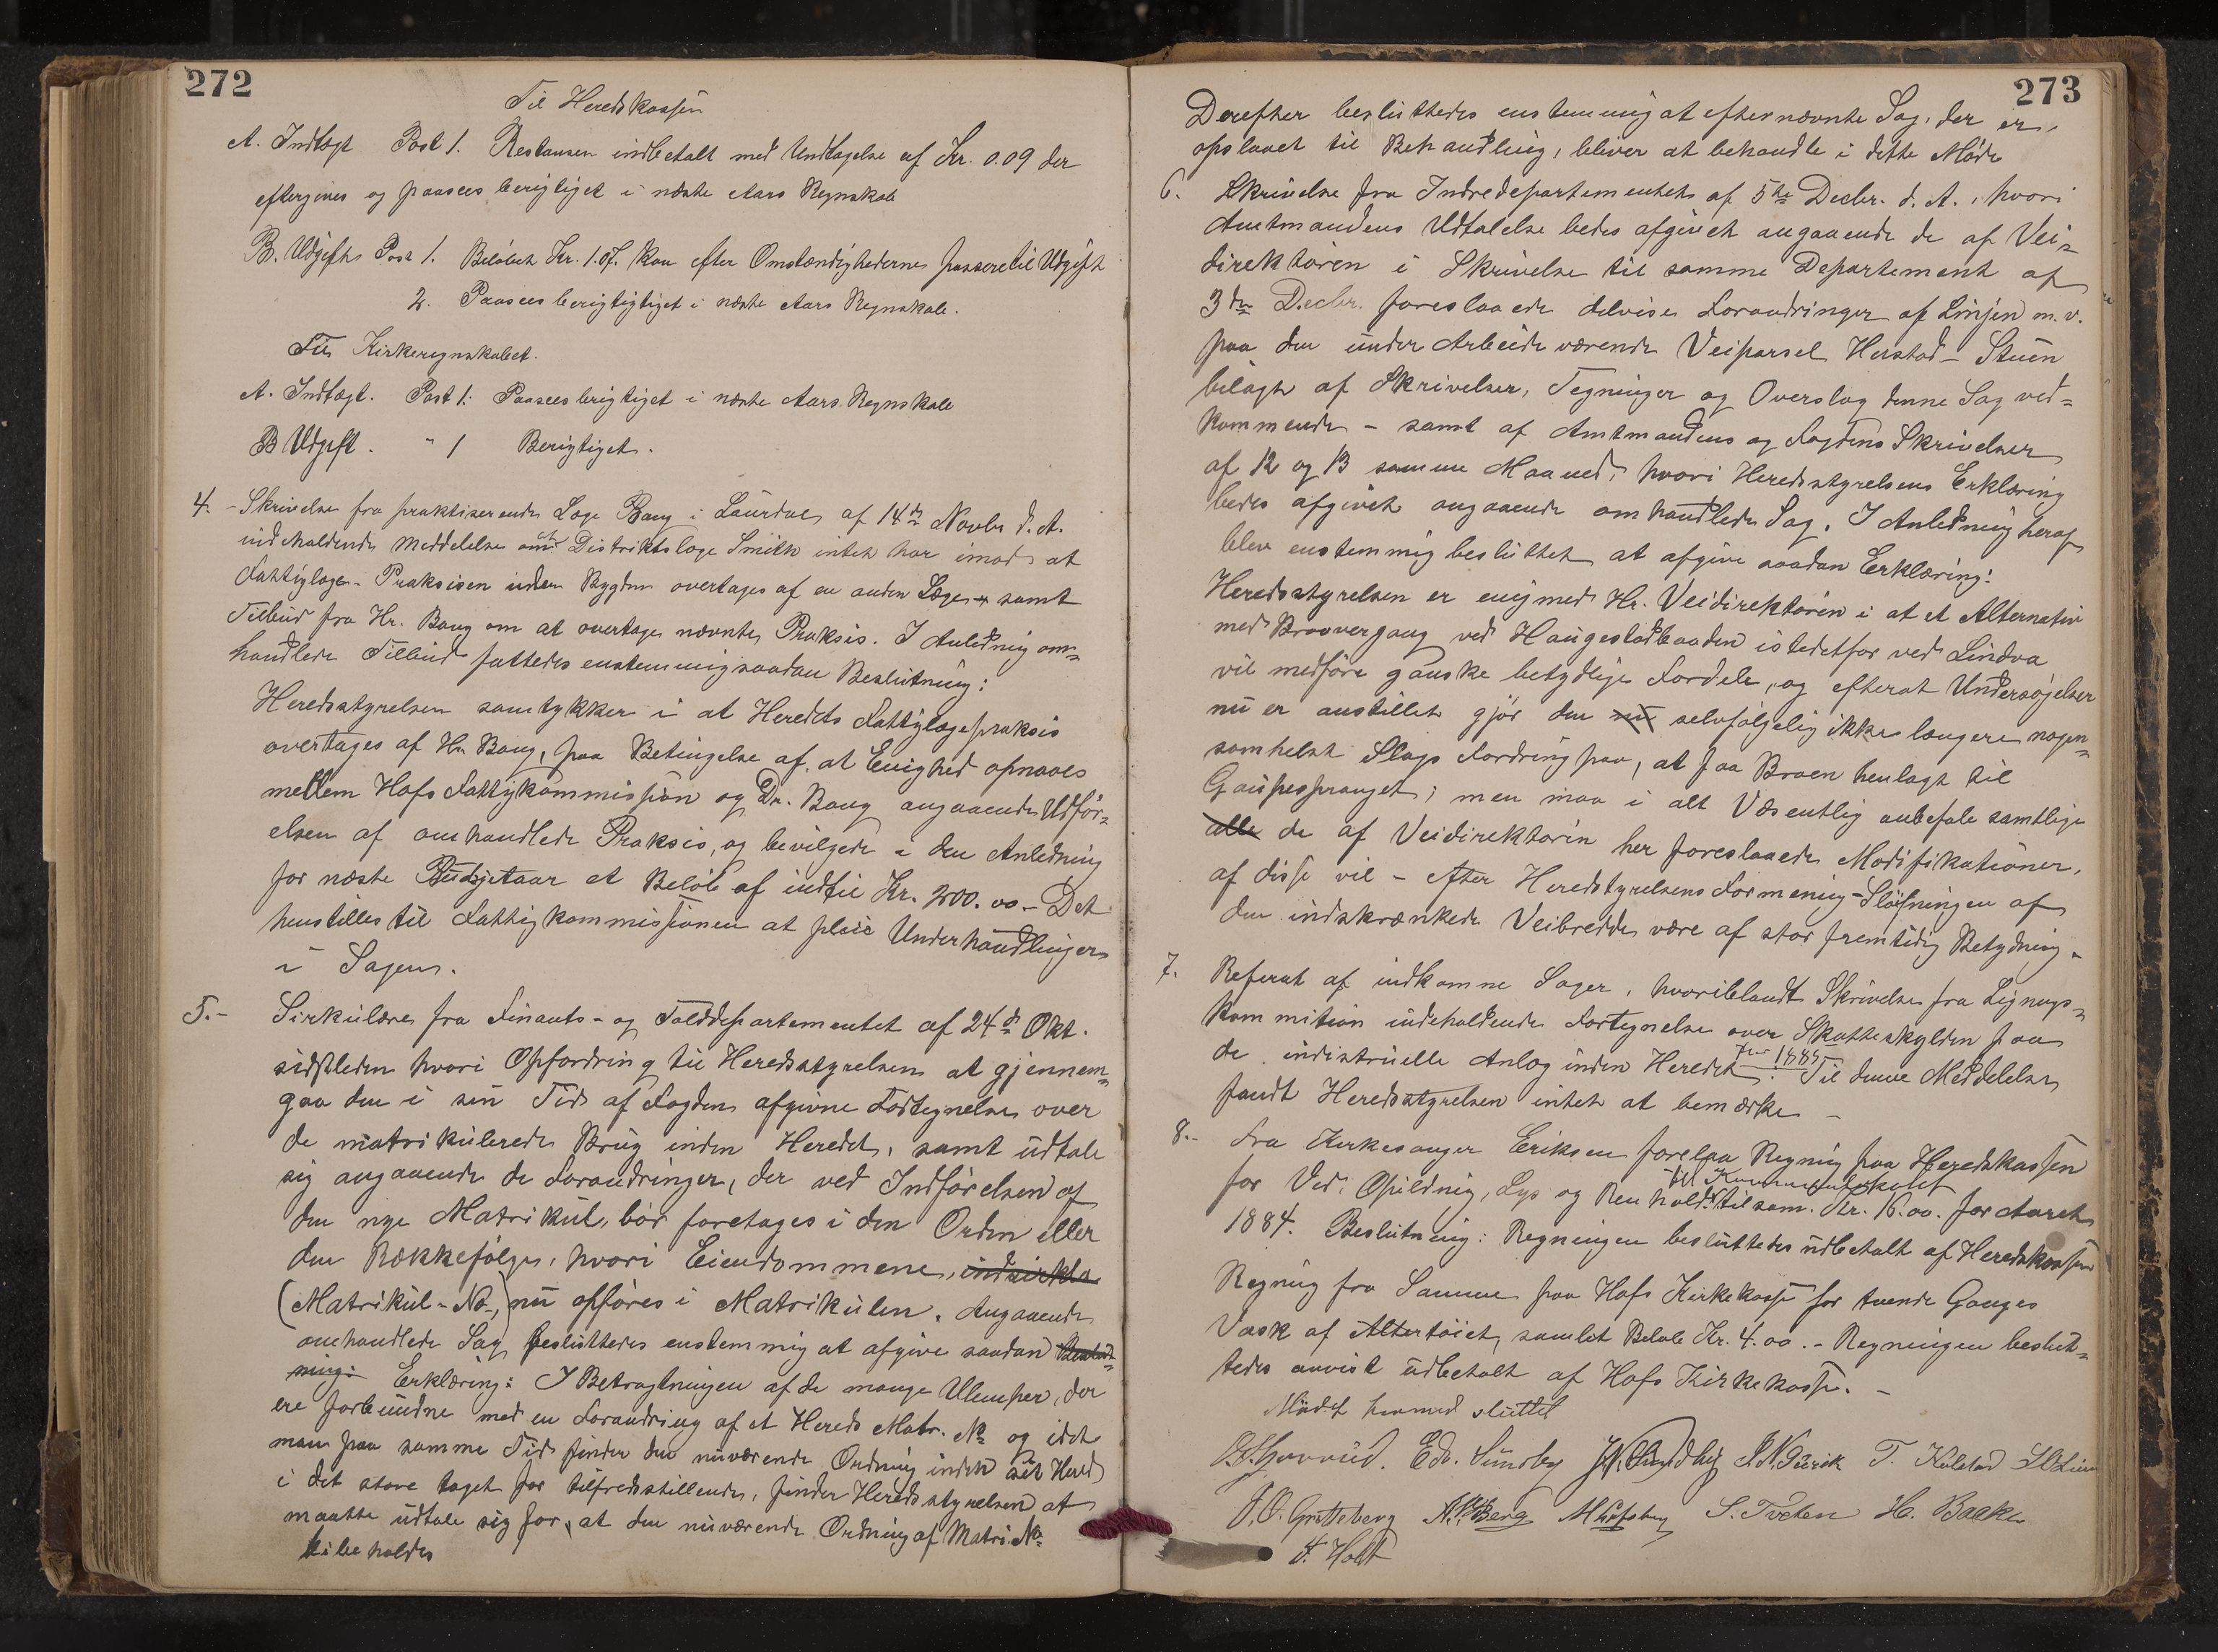 272
Til Heredskassen
A. Indtægt Post 1. Restansen indbetalt med Undtagelse af Kr. 0.09 der
eftergives og paasees berigtiget i næste Aars Regnskab
B. Udgift Post 1. Beløbet Kr. 1.07. kan efter Omstændighederne passere til Udgift
2. Paasees berigtigtiget i næste Aars Regnskab.
Til Kirkeregnskabet.
A. Indtægt. Post 1: Paasees berigtiget i næste Aars Regnskab
B Udgift. " 1 Berigtiget.
4. - Skrivelse fra praktiserende Læge Bang i Laurdal af 14de Novbr d. A.
indeholdende Meddelelse om at Distriktslæge Smith intet har imod at
Fattiglæge-Praksisen inden Bygden overtages af en anden Læge samt
Tilbud fra Hr. Bang om at overtage nævnte Praksis. I Anledning om=
handlede Tilbud fattedes enstemmig saadan Beslutning:
Heredsstyrelsen samtykker i at Heredets Fattiglægepraksis
overtages af Hr. Bang, paa Betingelse af, at Enighed opnaaes
mellem Hofs Fattigkommission og Dr. Bang angaaende Udfør=
elsen af omhandlede Praksis, og bevilgede i den Anledning
for næste Budgjetaar et Beløb af indtil Kr. 200.00 - Det
henstilles til Fattigkommissionen at pleie Underhandlinger
i Sagen.
5. - Sirkulære fra Finants- og Tolddepartementet af 24de Okt.
sidstleden hvori Opfordring til Heredsstyrelsen at gjennem=
gaa den i sin Tid af Fogden afgivne Fortegnelse over
de matrikulerede Brug inden Heredet, samt udtale
sig angaaende de Forandringer, der ved Indførelsen af
den nye Matrikul, bør foretages i den Orden eller
den Rækkefølge, hvori Eiendommene,
(Matrikul-No,) nu opføres i Matrikulen. Angaaende
omhandlede Sag besluttedes enstemmig at afgive saadan Beslut=
ning: Erklæring: I Betragtningen af de mange Ulemper, der
ere forbundne med en Forandring af et Hereds Matr. No og idet
man paa samme Tid finder den nuværende Ordning inden sit Hered
i det store taget for tilfredsstillende, finder Heredsstyrelsen at
maatte udtale sig for, at den nuværende Ordning af Matr. No
bibeholdes
273
Derefter besluttedes enstemmig at efternævnte Sag, der er
opslaaet til Behandling, bliver at behandle i dette Møde
6. Skrivelse fra Indredepartementet af 5te Decbr. d. A., hvori
Amtmandens Udtalelse bedes afgivet angaaende de af Vei=
direktøren i Skrivelse til samme Departement af
3die Decbr. foreslaaede delvise Forandringer af Linjen m. v.
paa den under Arbeide værende Veiparsel Herstad - Stuen
bilagt af Skrivelser, Tegninger og Overslag denne Sag ved=
kommende - samt af Amtmandens og Fogdens Skrivelser
af 12 og 13 samme Maaned, hvori Heredsstyrelsens Erklæring
bedes afgivet angaaende omhandlede Sag. I Anledning heraf
blev enstemmig besluttet at afgive saadan Erklæring:
Heredsstyrelsen er enig med Hr. Veidirektøren i at et Alternativ
med Broovergang ved Haugestadbaaden istedetfor ved Lindva
vil medføre ganske betydlige Fordele, og efterat Undersøgelser
nu er anstillet gjør den nu selvfølgelig ikke længere nogen=
somhelst Slags Fordring paa, at faa Broen henlagt til
Gaupespranget; men maa i alt Væsentlig anbefale samtlige
alle de af Veidirektøren her foreslaaede Modifikationer,
af disse vil - efter Heredstyrelsens Formening - Sløifningen af
den indskrænkede Veibredde være af stor fremtidig Betydning.
7. Referat af indkomne Sager, hvoriblandt Skrivelse fra Lignings=
kommition indeholdende Fortegnelse over Skatteskylden paa
de industrielle Anlæg inden Heredet for 1885. Til denne Meddelelse
fandt Heredsstyrelsen intet at bemærke -
8. - Fra Kirkesanger Eriksen forelaa Regning paa Heredskassen
for Ved, Opildning, Lys og Renhold til Kommunelokalet tilsam. Kr. 16.00. for Aaret
1884. Beslutning: Regningen besluttedes udbetalt af Heredskassen
Regning fra Samme paa Hofs Kirkekasse for tvende Ganges
Vask af Altertøiet, samlet Beløb Kr. 4.00. - Regningen beslut=
tedes anvist udbetalt af Hofs Kirkekasse. -
Mødet hermed sluttet
Edv. Sundby T. Kolstad
O. O. Grytteberg Berg S. Tveten H. Bakke
F. Holt